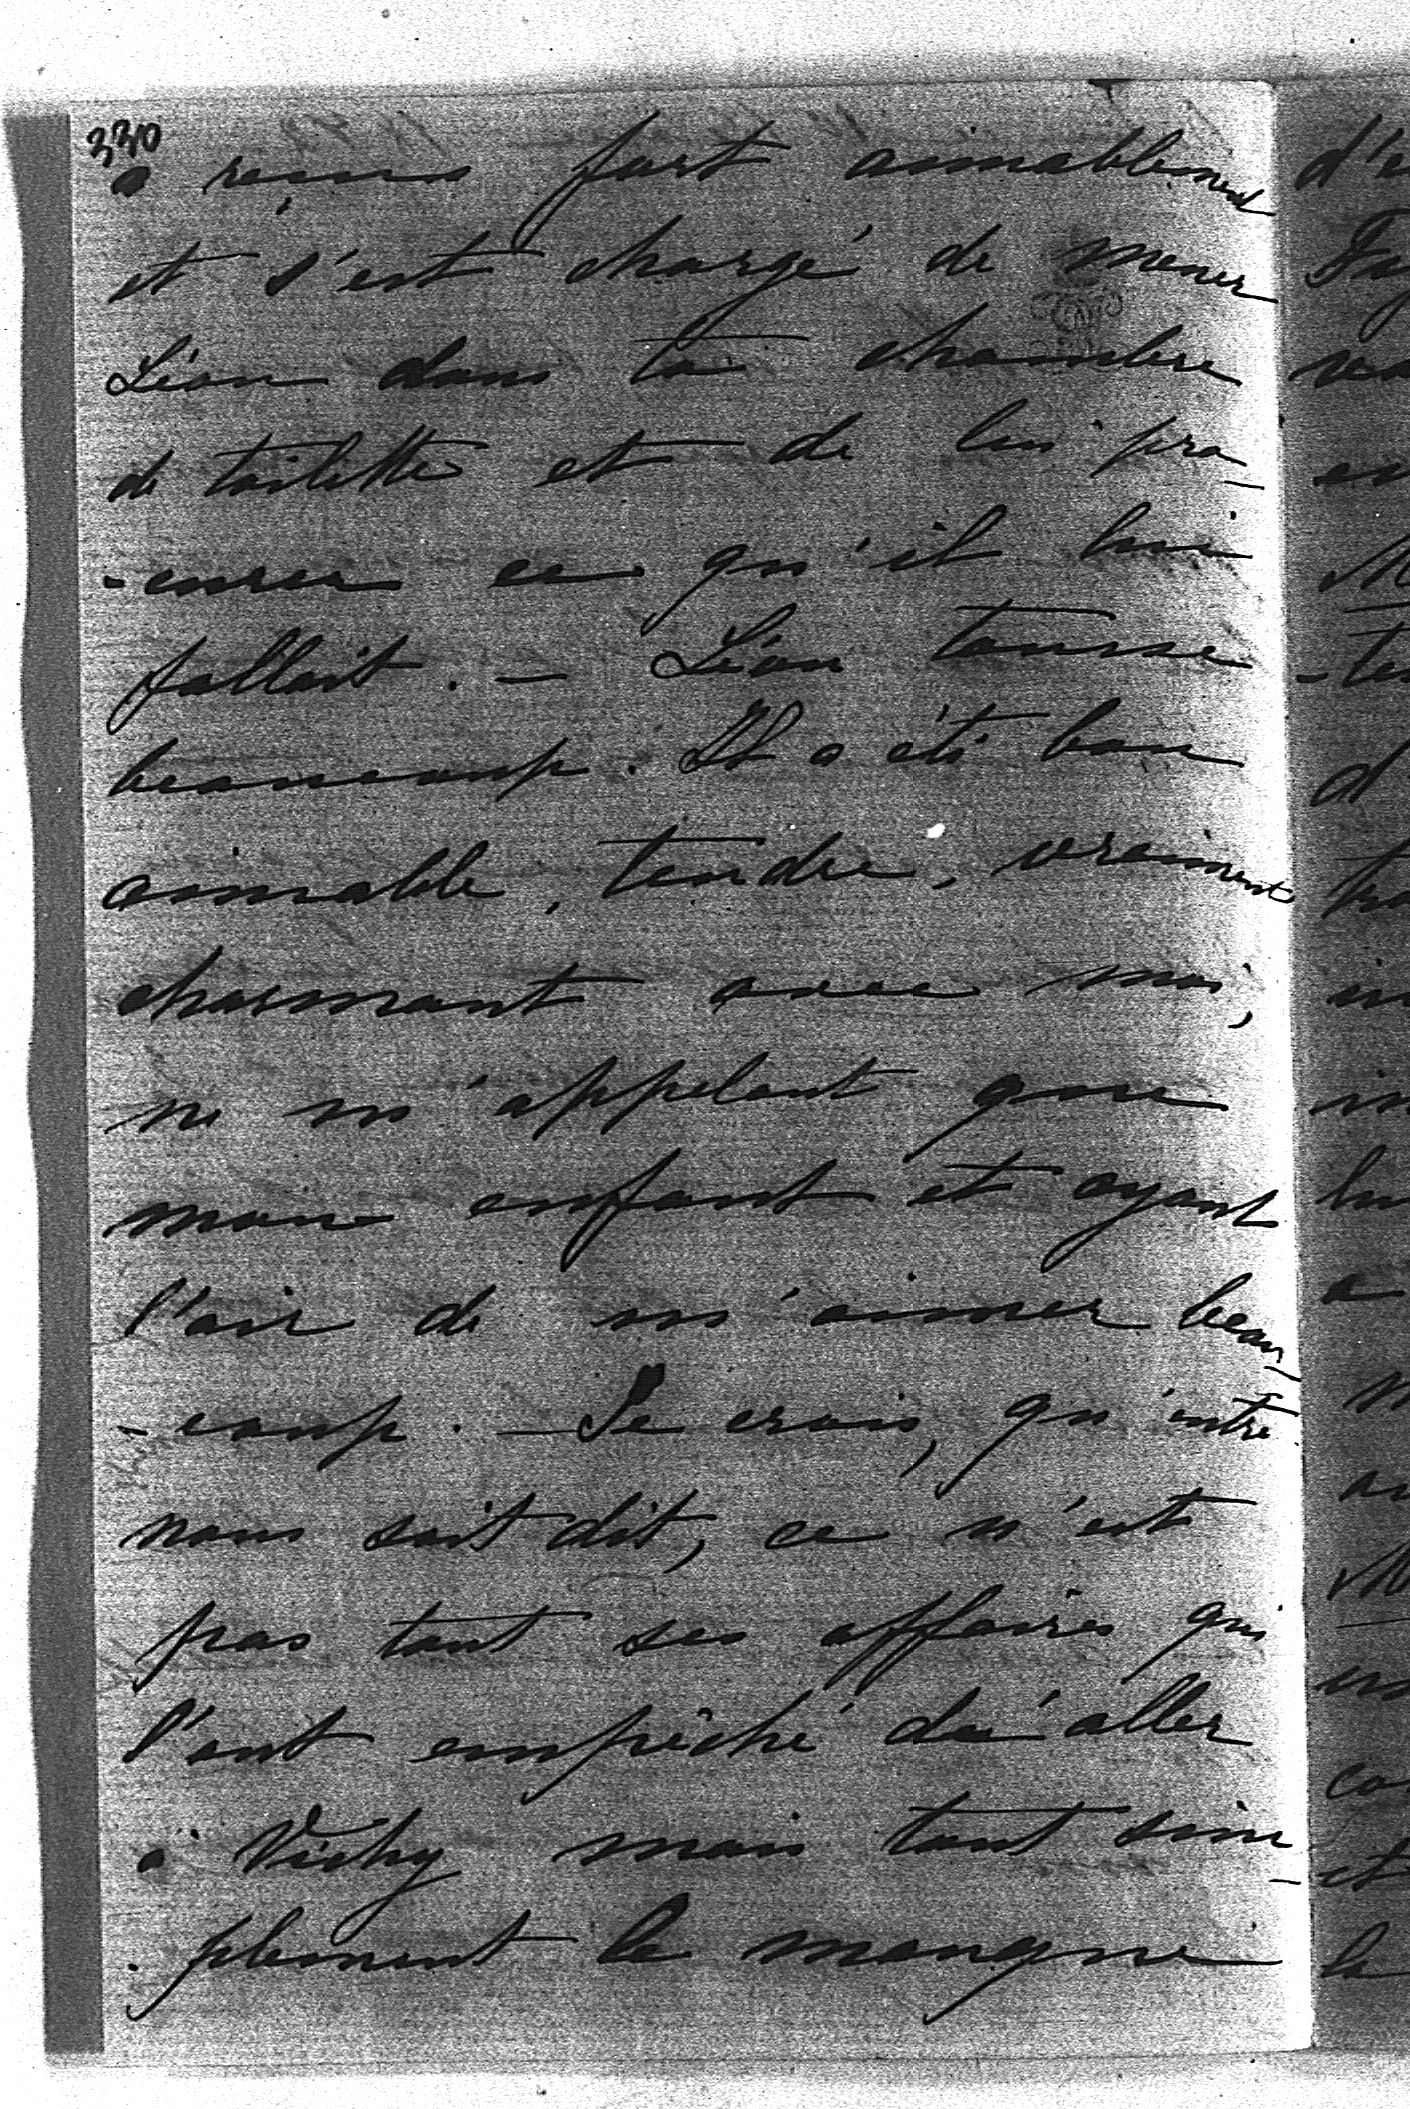 330
a reçus fort aimablement
et s'est chargé de mener
Léon dans ta chambre
de toilette et de lui pro-
-curer ce qu'il lui
fallait. — Léon tousse
beaucoup. Il a été bon
aimable, tendre, vraiment
charmant avec moi,
ne m'appelant que
mon enfant et ayant
l'air de m'aimer beau-
-coup. — Je crois, qu'entre
nous soit dit, ce n'est
pas tant ses affaires qui
l'ont empêché d'aller
à Vichy mais tout sim-
-plement le manque